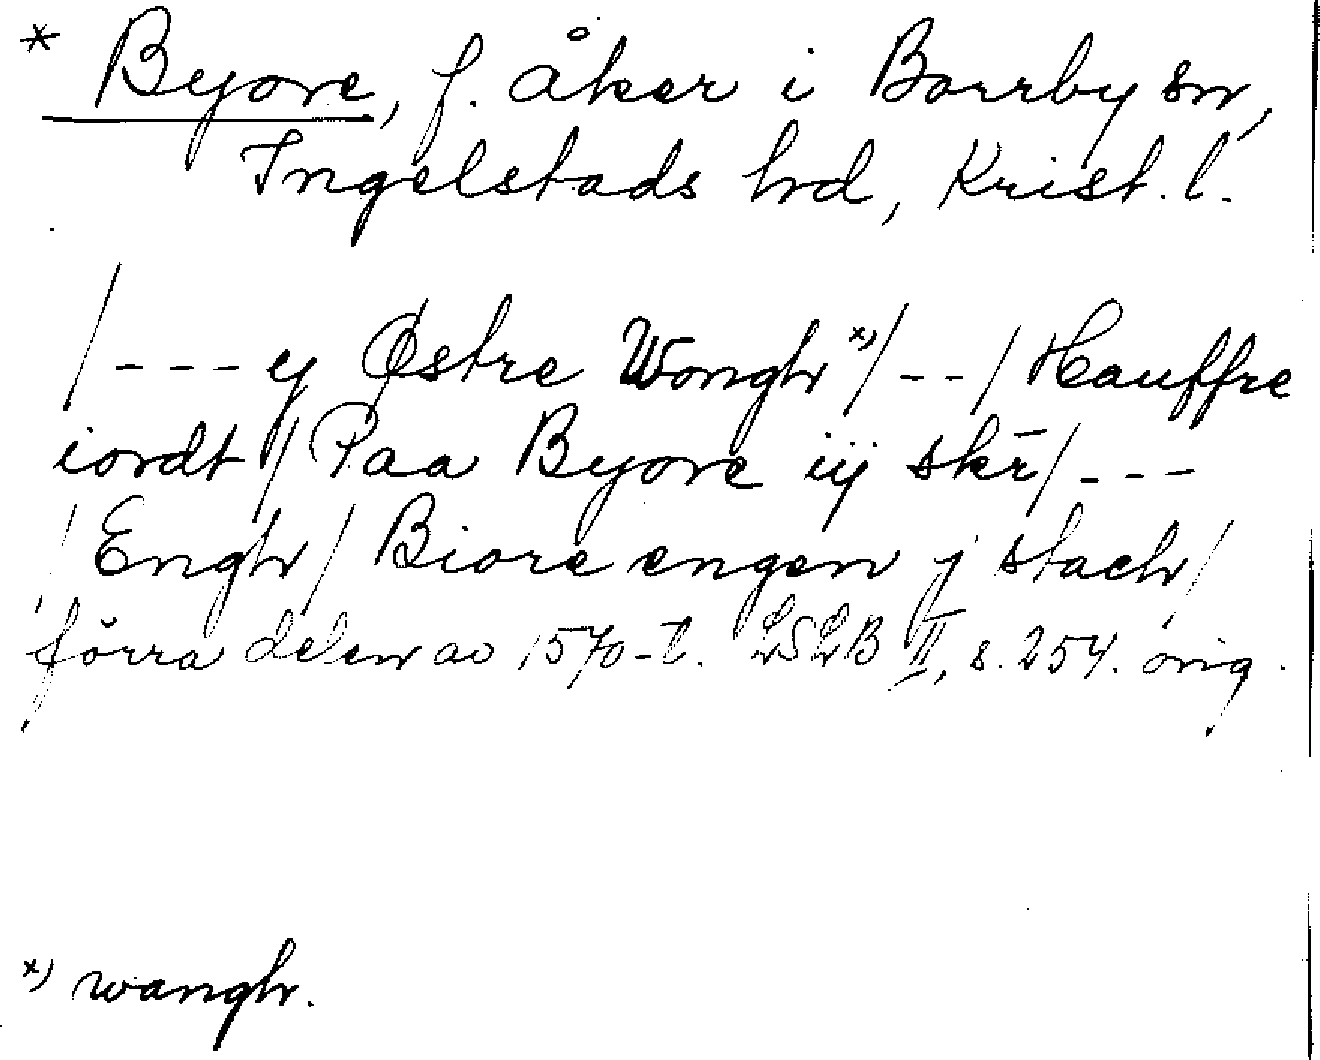 * Byore, f. åker i Borrby sn,
Ingelstads hrd, Krist. l.
/--- y Østre Wongh x)/--/ Hauffre
iordt / Paa Byore iij skr̄/---
/Engh/ Biore engen j stach/
förra delen av 1570-t. LSLB II, s. 254. orig.
x) wangh.